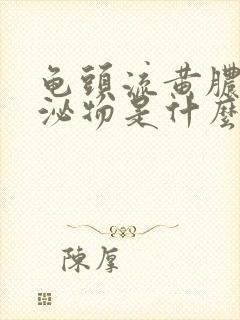 龟頭流黄膿
泌物是什麽
陳厚